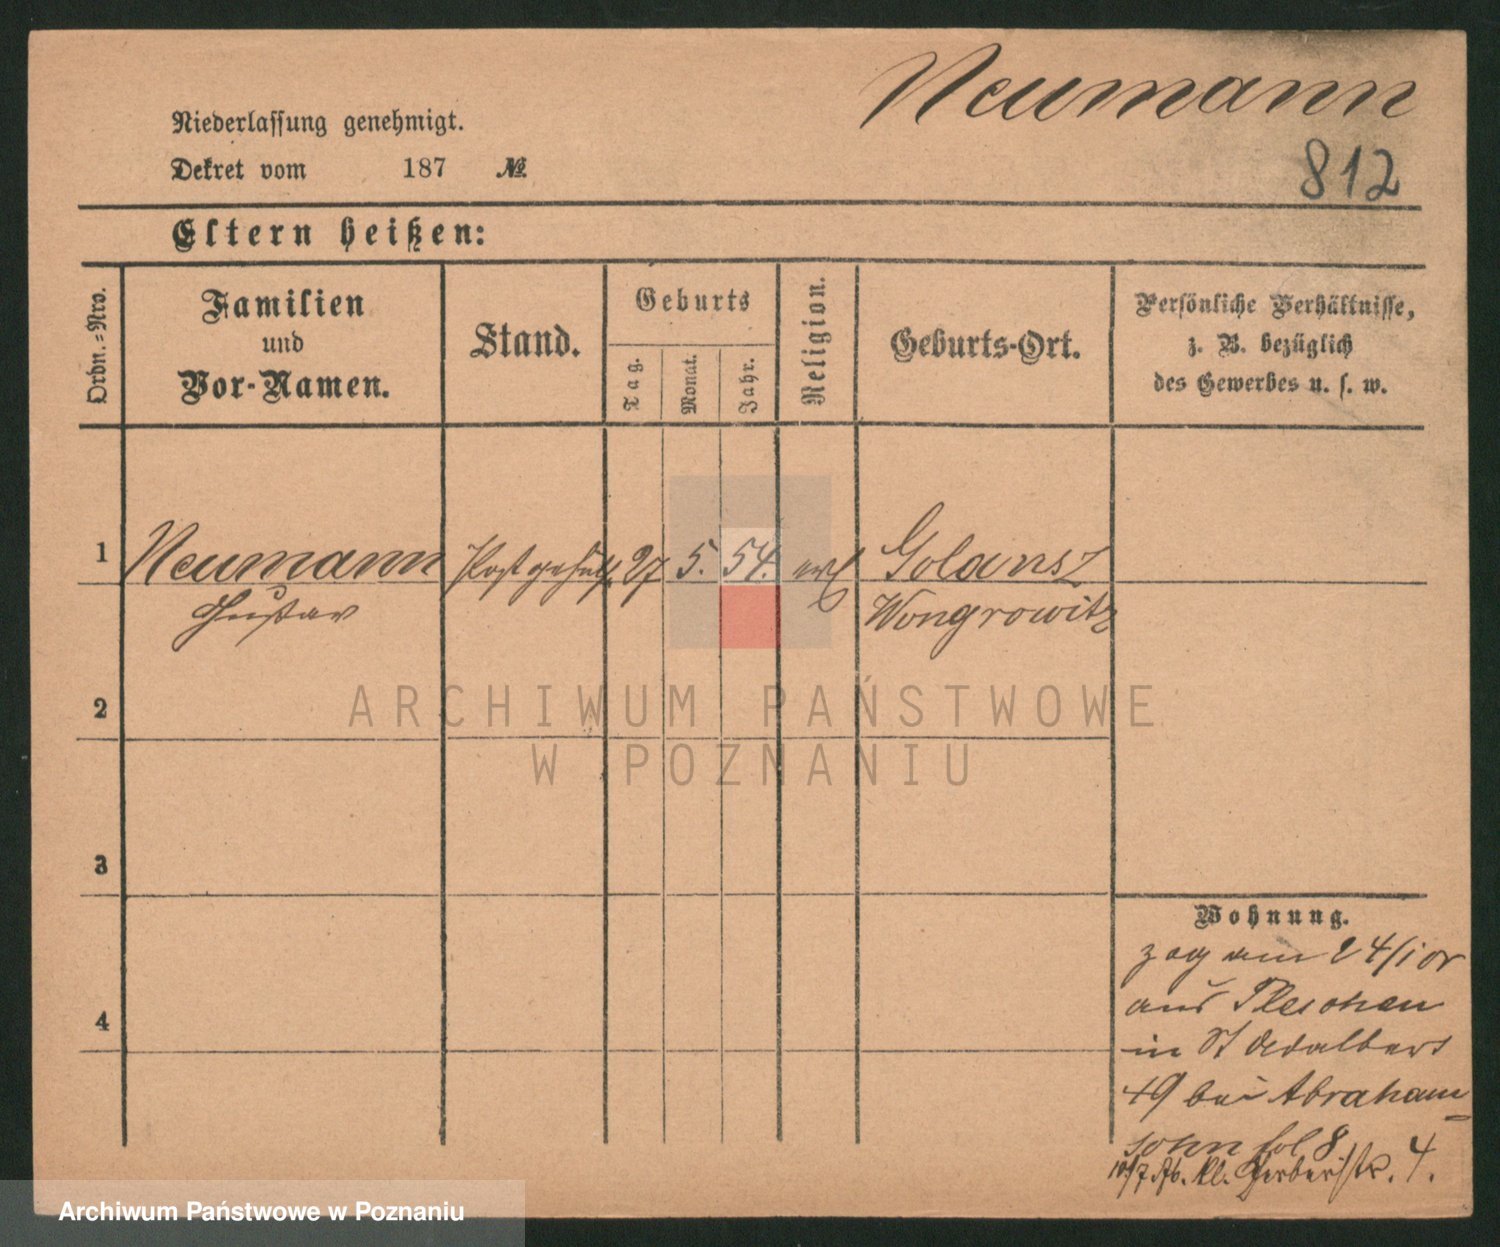 Neumann
812
Niederlassung genehmigt.
Dekret vom 187 №
Eltern heißen:
Ordn.=Nro.
Familien
und
Vor-Namen.
Stand.
Geburts
Tag.
Monat.
Jahr.
Religion.
Geburts-Ort.
Persönliche Verhältnisse,
z. B. bezüglich
des Gewerbes u. s. w.
1 Neumann Postgehülf 27 5. 54. Golansz
Gustav Wongrowitz
2
ARCHIWUM PAŃSTWOWE
W POZNANIU
3
Wohnung.
zog am 24/1 cr
aus Pleschen
in St Adalbert
49 bei Abraham-
sohn fol 8
4
kl. Gerberstr. 4.
Archiwum Państwowe w Poznaniu